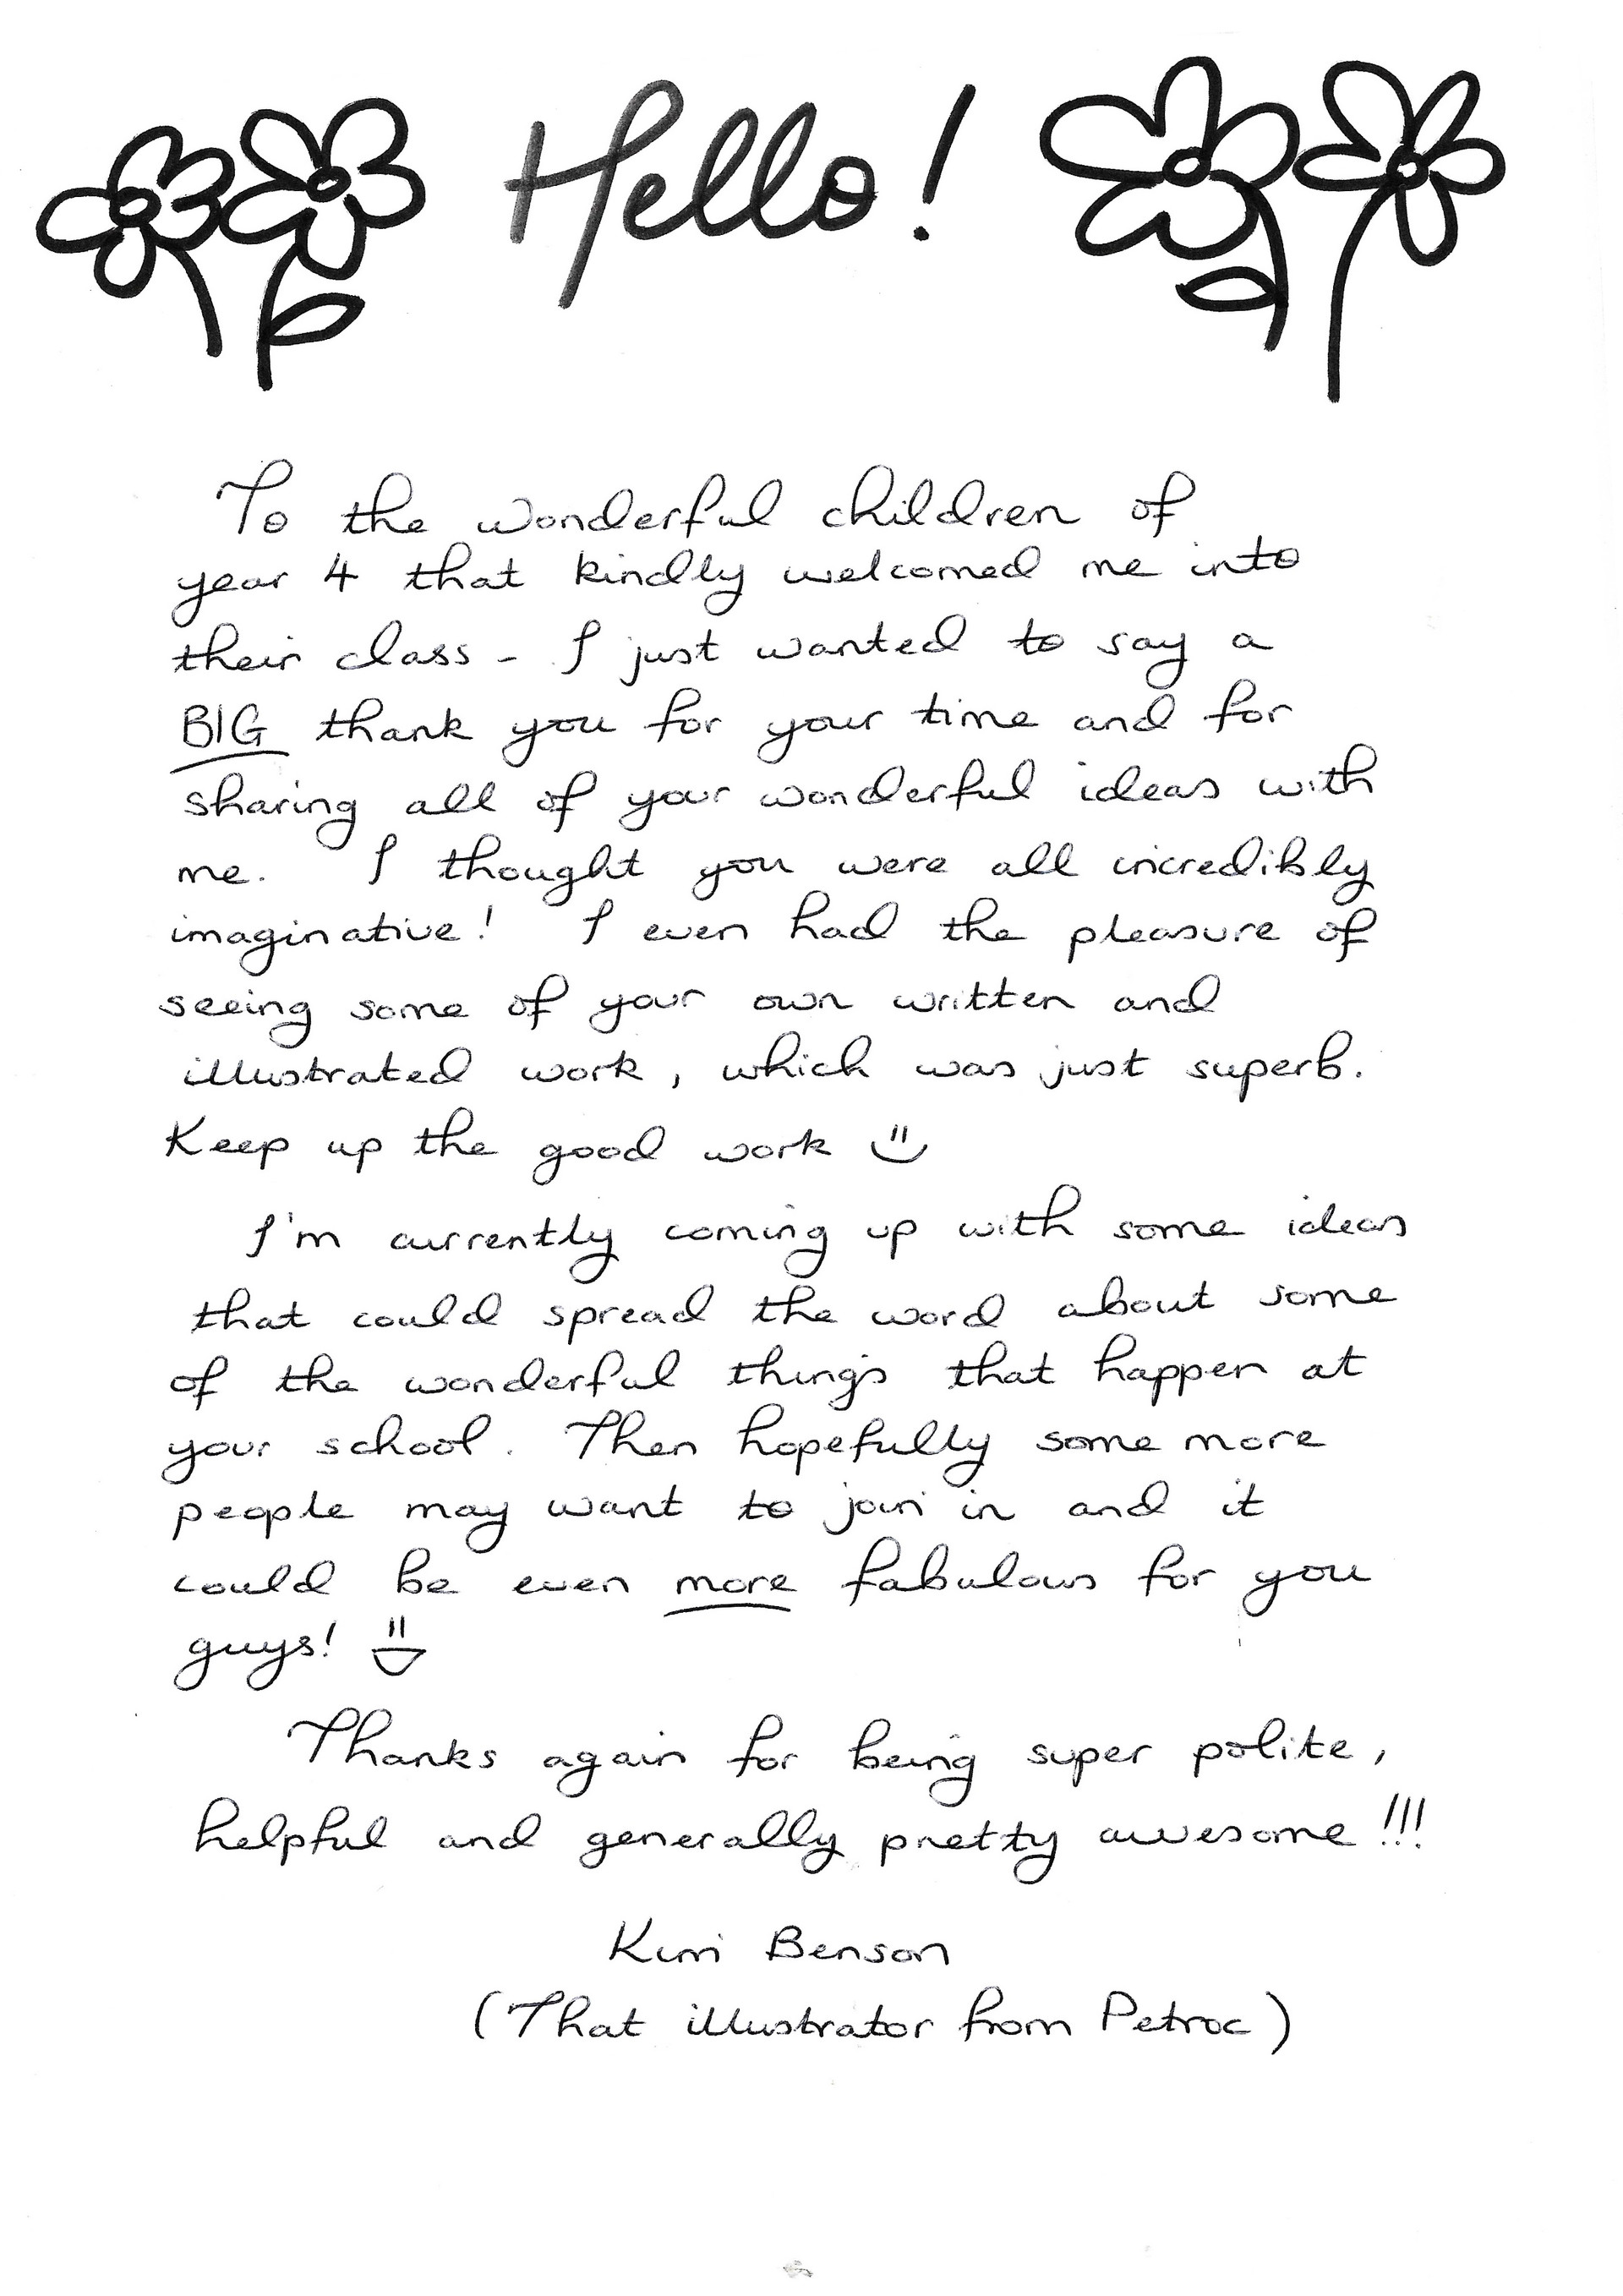 Hello!
To the wonderful children of
year 4 that kindly welcomed me into
their class - I just wanted to say a
BIG thank you for your time and for
sharing all of your wonderful ideas with
me. I thought you were all incredibly
imaginative! I even had the pleasure of
seeing some of your own written and
illustrated work, which was just superb.
Keep up the good work
I'm currently coming up with some ideas
that could spread the word about some
of the wonderful things that happen at
your school. Then hopefully some more
people may want to join in and it
could be even more fabulous for you
guys!
Thanks again for being super polite,
helpful and generally pretty awesome!!!
Kim Benson
(That illustrator from Petroc)